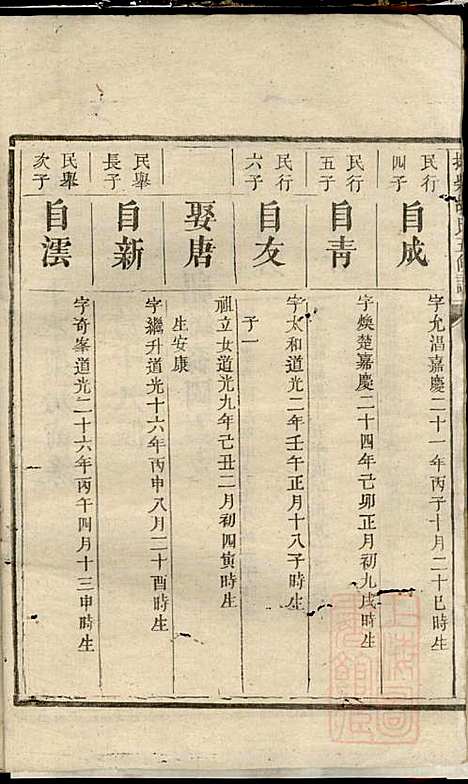 民行
四子
自成
字允湻嘉慶二十一年丙子十月二十巳時生
民行
五子
自青
字煥楚嘉慶二十四年己卯正月初九戌時生
民行
六子
自友
字太和道光二年壬午正月十八子時生
子一
娶唐
祖立女道光九年己丑二月初四寅時生
生安康
民舉
長子
自新
字繼升道光十六年丙申八月二十酉時生
民舉
次子
自澐
字奇峯道光二十六年丙午四月十三申時生